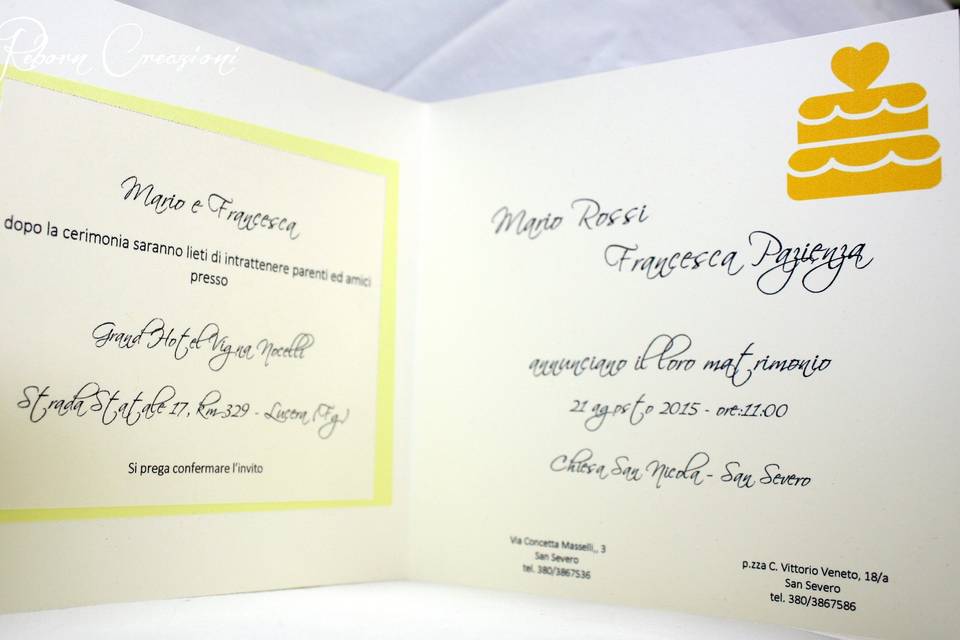 Reborn Creazioni
Mario e Francesca
dopo la cerimonia saranno lieti di intrattenere parenti ed amici
presso
Grand Hotel Vigna Nocelli
Strada Statale 17, km 329 - Lucera (Fg)
Si prega confermare l'invito
Mario Rossi
Francesca Pazienza
annunciano il loro matrimonio
21 agosto 2015 - ore:11:00
Chiesa San Nicola - San Severo
Via Concetta Masselli,, 3
San Severo
tel. 380/3867536
p.zza C. Vittorio Veneto, 18/a
San Severo
tel. 380/3867586